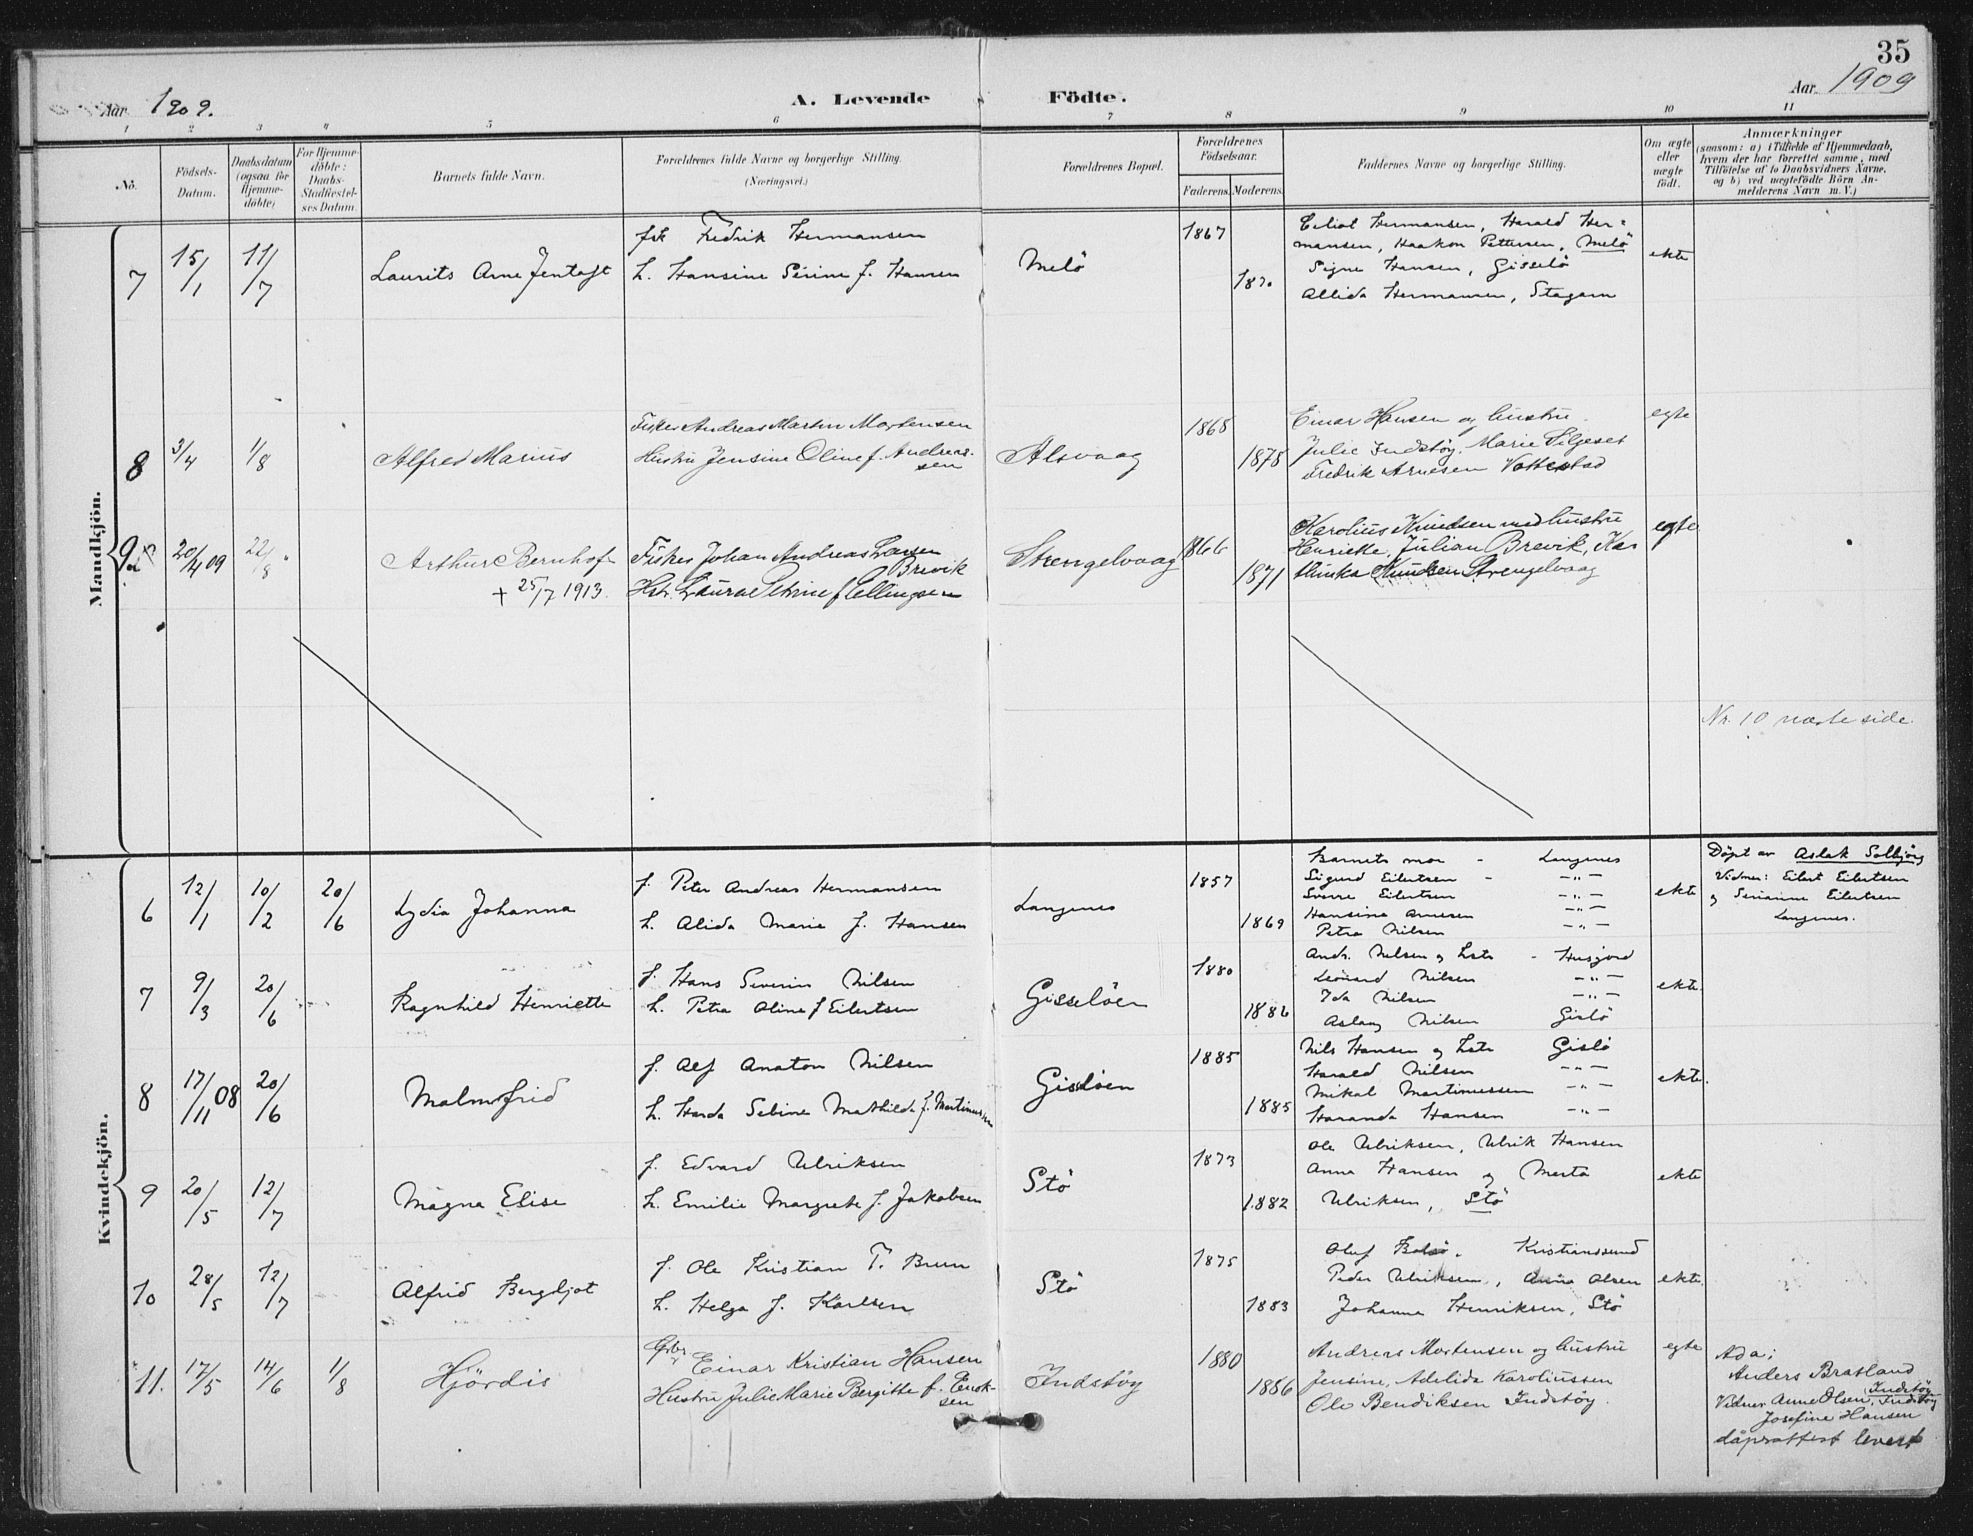 35
Aar 1909.
A. Levende Födte.
Aar 1909
1 2 3 4 5 6 7 8 9 10 11
No.
Födsels-
Datum.
Daabsdatum
(ogsaa for
Hjemme-
döbte)
For Hjemme-
döbte:
Daabs-
Stadfæstel-
ses Datum.
Barnets fulde Navn.
Forældrenes fulde Navne og borgerlige Stilling.
(Næringsvei.)
Forældrenes Bopæl.
Forældrenes
Födselsaar.
Faderens. Moderens.
Faddernes Navne og borgerlige Stilling.
Om ægte
eller
uægte
födt.
Anmærkninger
(saasom: a) i Tilfælde af Hjemmedaab,
hvem der har forrettet samme, med
Tilföielse af to Daabsvidners Navne,
og b) ved uægtefödte Börn An-
melderens Navn m. V.)
Mandkjön.
7
15/1
11/7
Laurits Arne Jentoft
fsk Fredrik Hermansen
h. Hansine Serine f. Hansen
Melö
1867
1870
Hermansen, Harald Her-
mansen, Haakon Pettersen, Melö
Signe Hansen, Gisselö
Allida Hermansen, Stagarn
ekte
8
3/4
1/8
Alfred Marius
Fisker Andreas Martin Mortensen
Hustru Jensine Oline f. Andreas-
sen
Alsvaag
1868
1878
Einar Hansen og hustru
Julie Indstöy, Marie
Fredrik Arnesen Vottestad
egte
9
20/4 09
22/8
Arthur Bernhof
+ 25/7 1913.
Fisker Johan Andreas Larsen
Brevik
Hst. Laura Petrine f Ellingsen
Strengelvaag
1866
1871
Karolius Knudsen med hustru
Henrikke, Julian Brevik, Kas
Knudsen Strengelvaag
egte
Nr. 10 næste side.
Kvindekjön.
6
12/1
10/2
20/6
Lydia Johanna
f. Peter Andreas Hermansen
h. Alida Marie f. Hansen
Langenes
1857
1869
Barnets mor - Langenes
Sigurd Eilertsen - - " -
Sverre Eilertsen - " -
Hansine Arnesen - " -
Petra Nilsen - " -
ekte
Döpt av Aslak Solbjörg
Vidner: Eilert Eilertsen
og Serianne Eilertsen
Langenes.
7
9/3
20/6
Ragnhild Henriette
f. Hans Severin Nilsen
h. Petra Oline f Eilertsen
Gisselöen
1880
1886
Andr. Nilsen og hstr - Husjord
Leonard Nilsen - " -
Ida Nilsen - " -
Aslaug Nilsen Gislö
ekte.
8
17/11 08
20/6
Malmfrid
f. Alf Anaton Nilsen
h. Harda Sebine Mathilda f. Martinussen
Gislöen
1885
1885
Nils Hansen og hstr Gislö
Harald Nilsen - " -
Mikal Martinussen - " -
Haranda Hansen - " -
ekte.
9
20/5
12/7
Magna Elise
f. Edvard Ulriksen
h. Emilie Margrete f. Jakobsen
Stö
1873
1882
Ole Ulriksen, Ulrik Hansen
Anna Hansen og Merta
Ulriksen, Stö
ekte
10
28/5
12/7
Alfrid Bergljot
f. Ole Kristian T. Brun
h. Helga f. Karlsen
Stö
1875
1883
Oluf Kristianssund
Peder Ulriksen, Anna Olsen
Johanna Henriksen, Stö
ekte
11.
17/5
14/6
1/8
Hjördis
Gbr. Einar Kristian Hansen
Hustru Julie Marie Bergitte f. Enok-
sen
Indstöy
1880
1886
Andreas Mortensen og hustru
Jensine, Adelida Karoliussen
Ole Bendiksen Indstöy.
egte
Anders Bratland
Indstöy
Vidner Anne Olsen, Indstöy
Josefine Hansen
dåpsattest levert